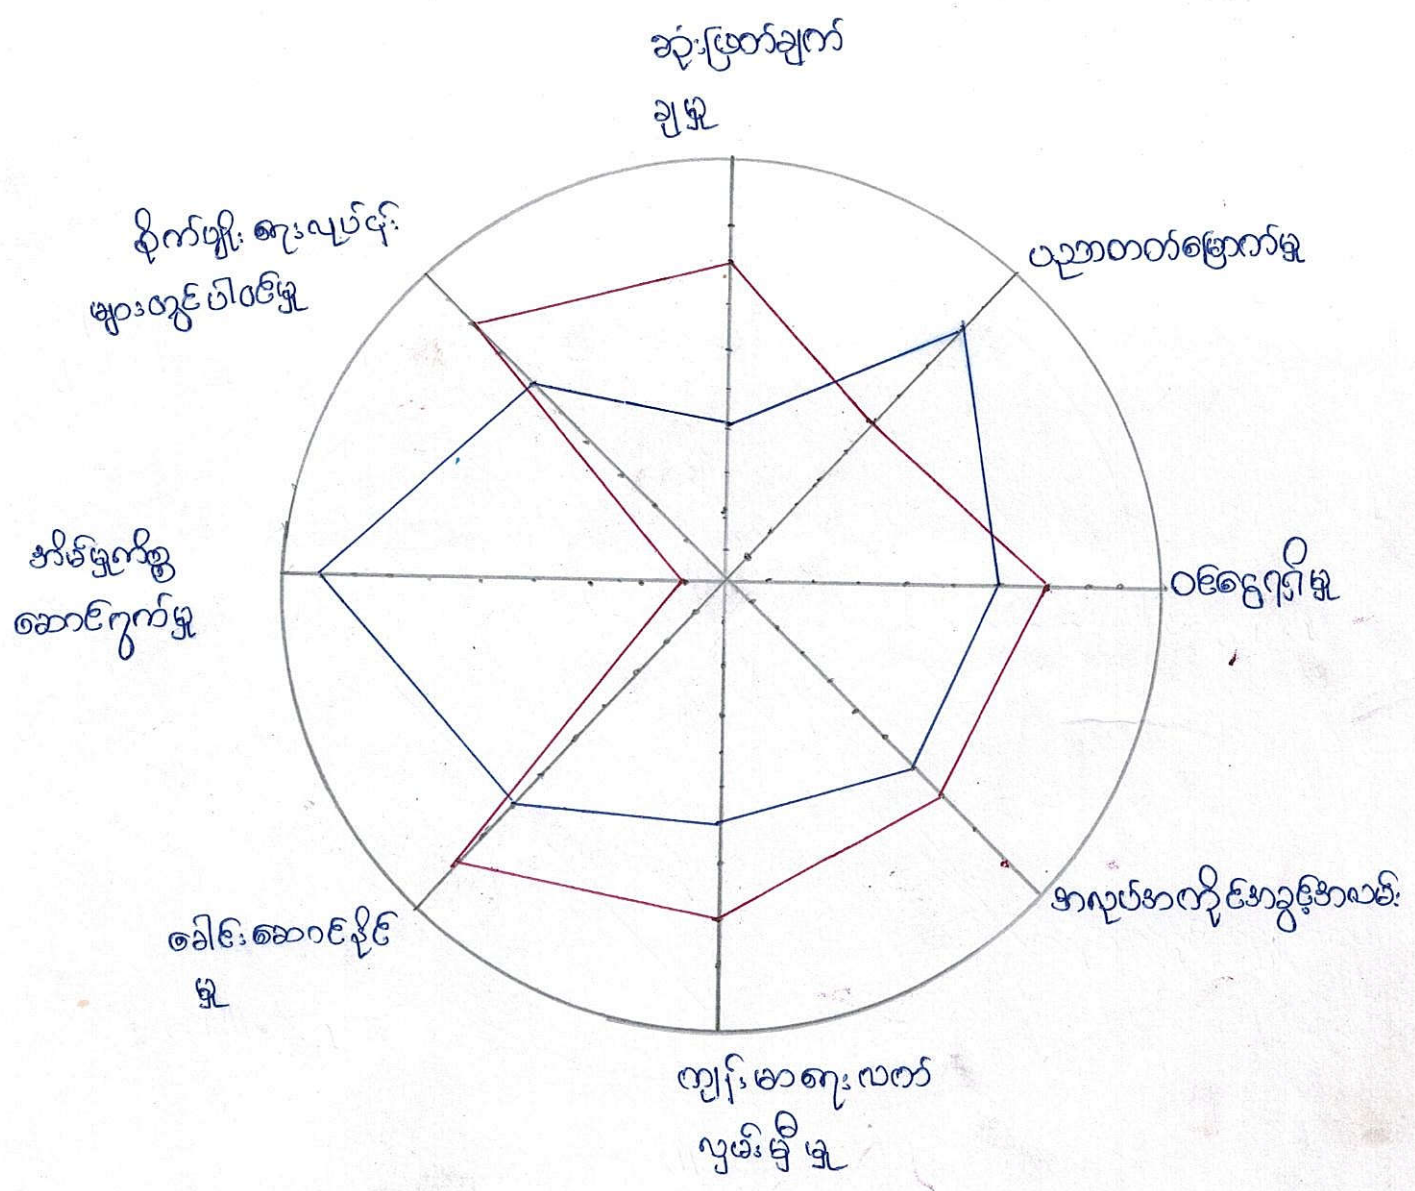 ဆုံးဖြတ်ချက်
ချမှု
ပညာတတ်မြောက်မှု
ဝင်ငွေရရှိမှု
အလုပ်အကိုင်အခွင့်အလမ်း
ကျန်းမာရေးလက်
လှမ်းမှီမှု
ခေါင်းဆောင်နိုင်
မှု
အိမ်မှုကိစ္စ
ဆောင်ရွက်မှု
စိုက်ပျိုးရေးလုပ်ငန်း
များတွင်ပါဝင်မှု